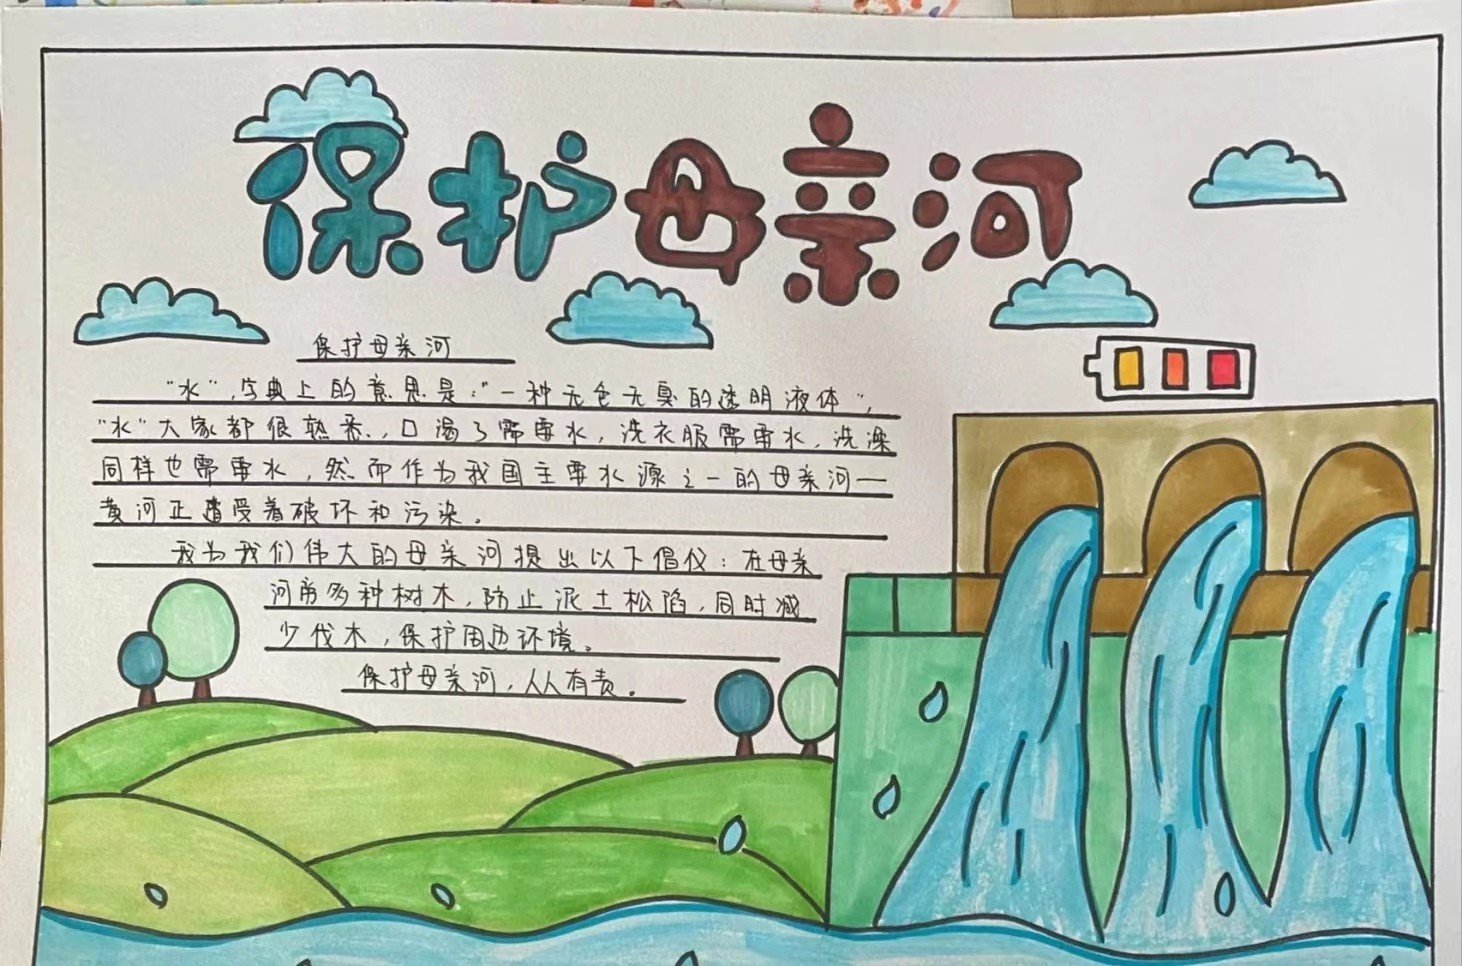 保护母亲河
保护母亲河
"水",字典上的意思是:"一种无色无臭的透明液体",
"水"大家都很熟悉,口渴了需要水,洗衣服需要水,洗澡
同样也需要水,然而作为我国主要水源之一的母亲河一
黄河正遭受着破坏和污染。
我为我们伟大的母亲河提出以下倡仪:在母亲
河旁多种树木,防止泥土松陷,同时减
少伐木,保护周边环境。
保护母亲河,人人有责。